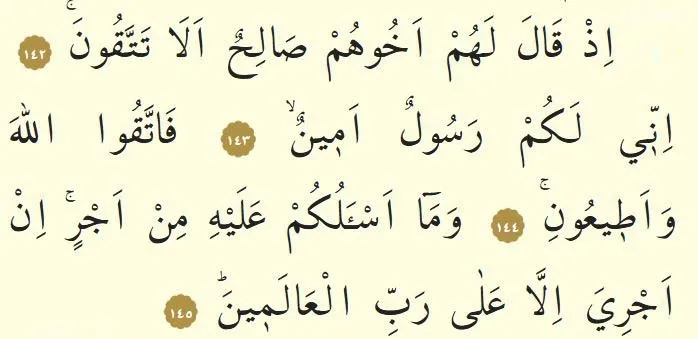 اِذْ قَالَ لَهُمْ اَخُوهُمْ صَالِحٌ اَلَا تَتَّقُونَۚ ١٤٢
اِنّ۪ي لَكُمْ رَسُولٌ اَم۪ينٌۙ ١٤٣ فَاتَّقُوا اللّٰهَ
وَاَط۪يعُونِۚ ١٤٤ وَمَٓا اَسْـَٔلُكُمْ عَلَيْهِ مِنْ اَجْرٍۚ اِنْ
اَجْرِيَ اِلَّا عَلٰى رَبِّ الْعَالَم۪ينَۜ ١٤٥